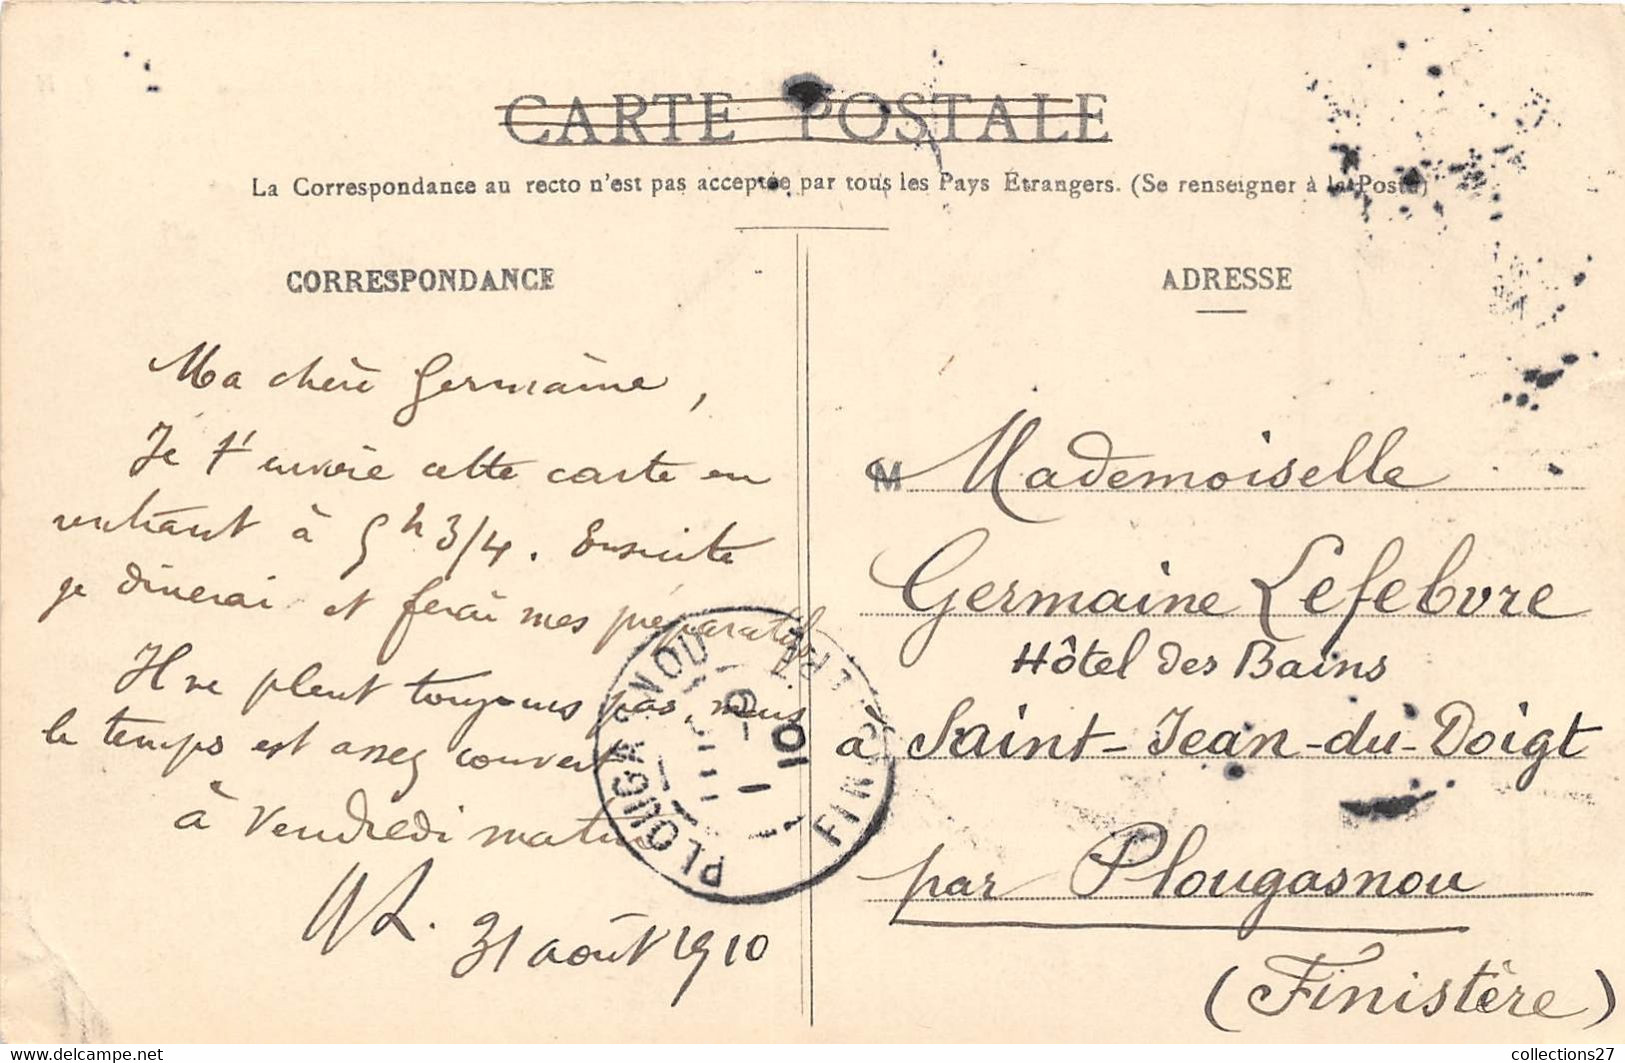 CARTE POSTALE
La Correspondance au recto n'est pas acceptée par tous les Pays Étrangers. (Se renseigner à la Poste)
CORRESPONDANCE
Ma chère Germaine,
Je t'envoie cette carte en
rentrant à 5h 3/4. Ensuite
je dinerai et ferai mes préparatifs
Il ne pleut toujours pas, mais
le temps est assez couvert
à Vendredi matin
31 août 1910
PLOUGASNOU
FINISTÈRE
1
9
10
ADRESSE
M Mademoiselle
Germaine Lefebvre
Hôtel des Bains
à Saint-Jean-du-Doigt
par Plougasnou
(Finistère)
collections27